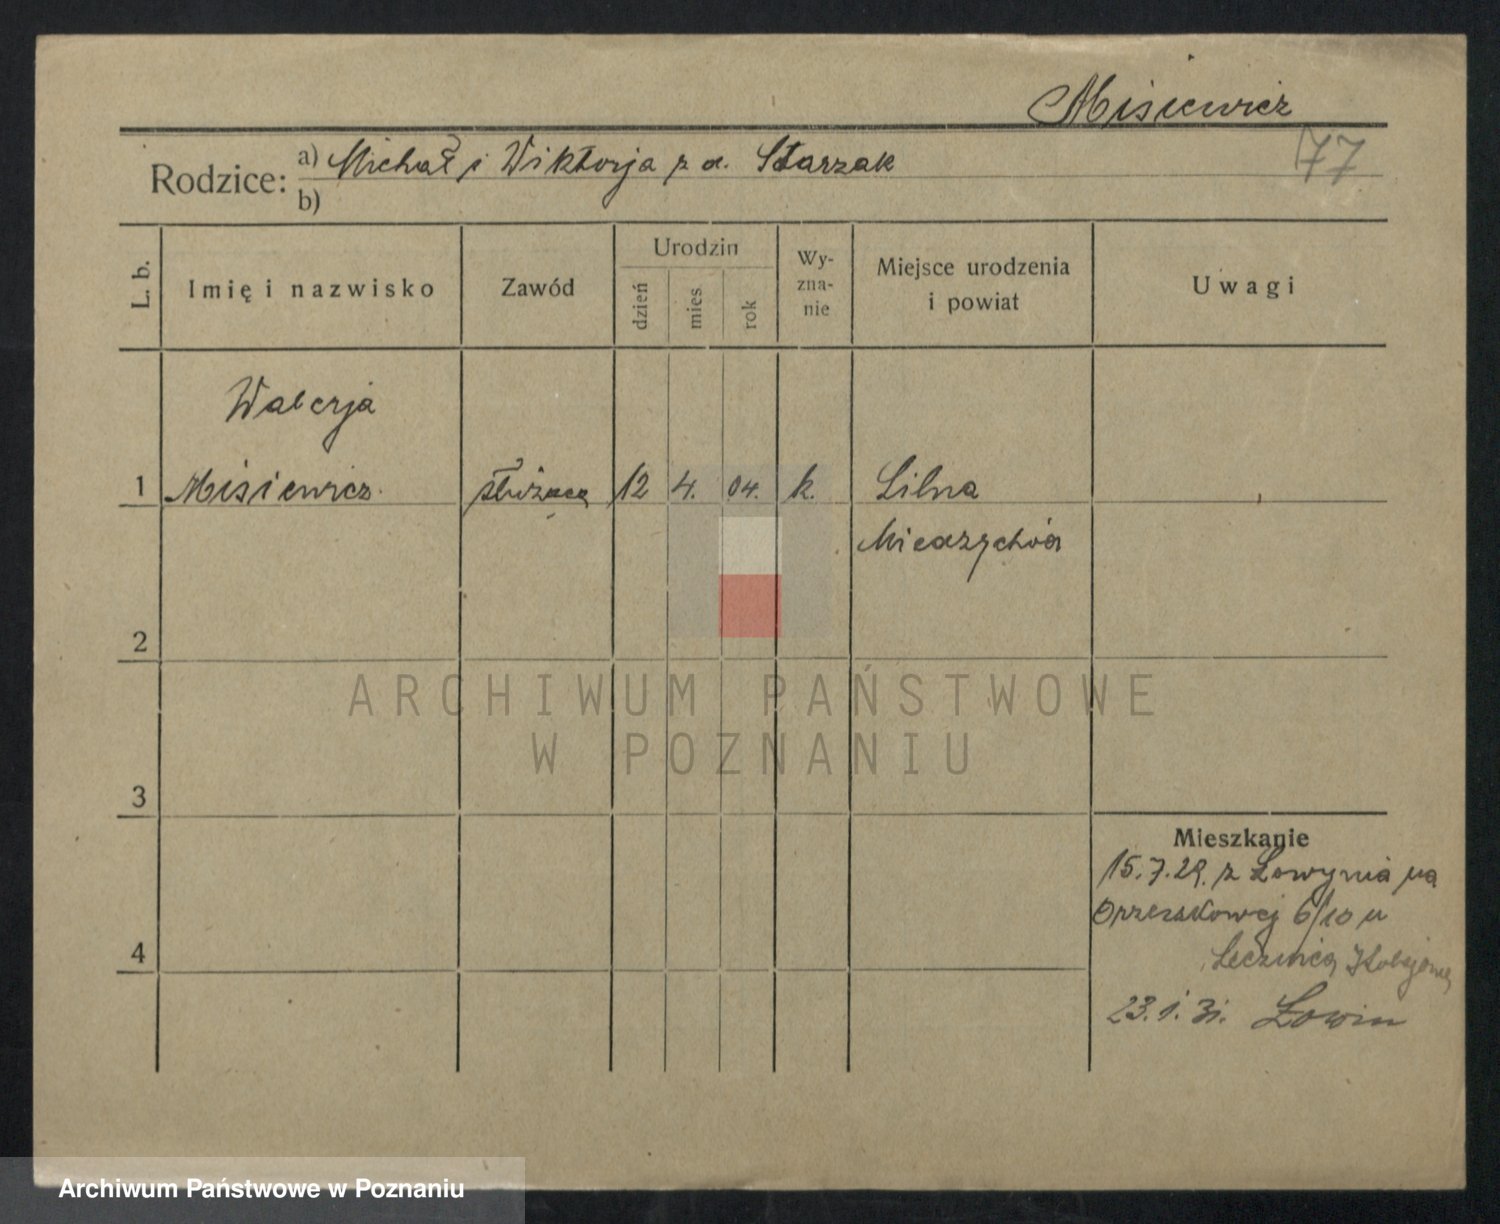 Misiewicz
77
Rodzice: a) Michał i Wiktorja z d. Starzak
b)
L. b.
Imię i nazwisko
Zawód
Urodzin
dzień
mies.
rok
Wy-
zna-
nie
Miejsce urodzenia
i powiat
Uwagi
Walerja
1 Misiewicz. służąca 12 4. 04. k. Lilna
Miedzychód
2
ARCHIWUM PAŃSTWOWE
W POZNANIU
3
Mieszkanie
15.7.29. z Łowynia na
Orzeszkowej 6/10 u
4
23.1.31. Łowin
Archiwum Państwowe w Poznaniu